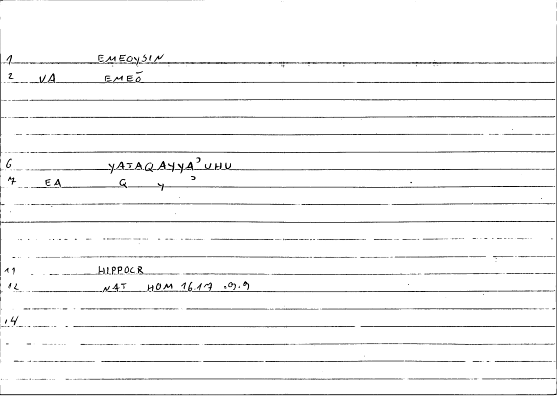 1 EMEOYSIN
2 VA EMEŌ
6 YATAQAYYA'UHU
7 EA Q Y '
11 HIPPOCR
12 NAT HOM 16.17 .9.9
14